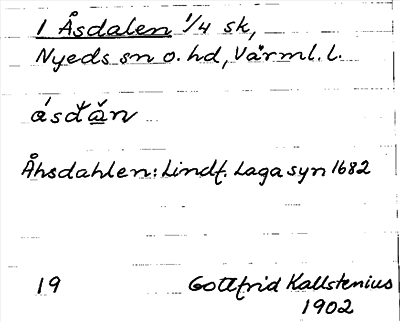 1 Åsdalen 1/4 sk,
Nyeds sn o. hd, Värml. l.
ásdǎn
Åhsdahlen: Lindf. Laga syn 1682
19 Gottfrid Kallstenius
1902